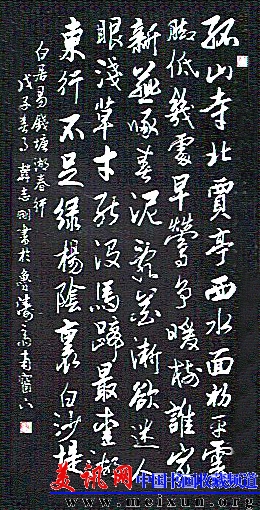 孤山寺北賈亭西水面初平雲
脚低幾處早鶯爭暖樹誰家
新燕啄春泥亂花漸欲迷人
眼淺草才能沒馬蹄最愛湖
東行不足綠楊陰裏白沙堤
白居易錢塘湖春行
戊子春月韓志剛書於魯
美讯网
中国书画收藏频道
www.meixun.org